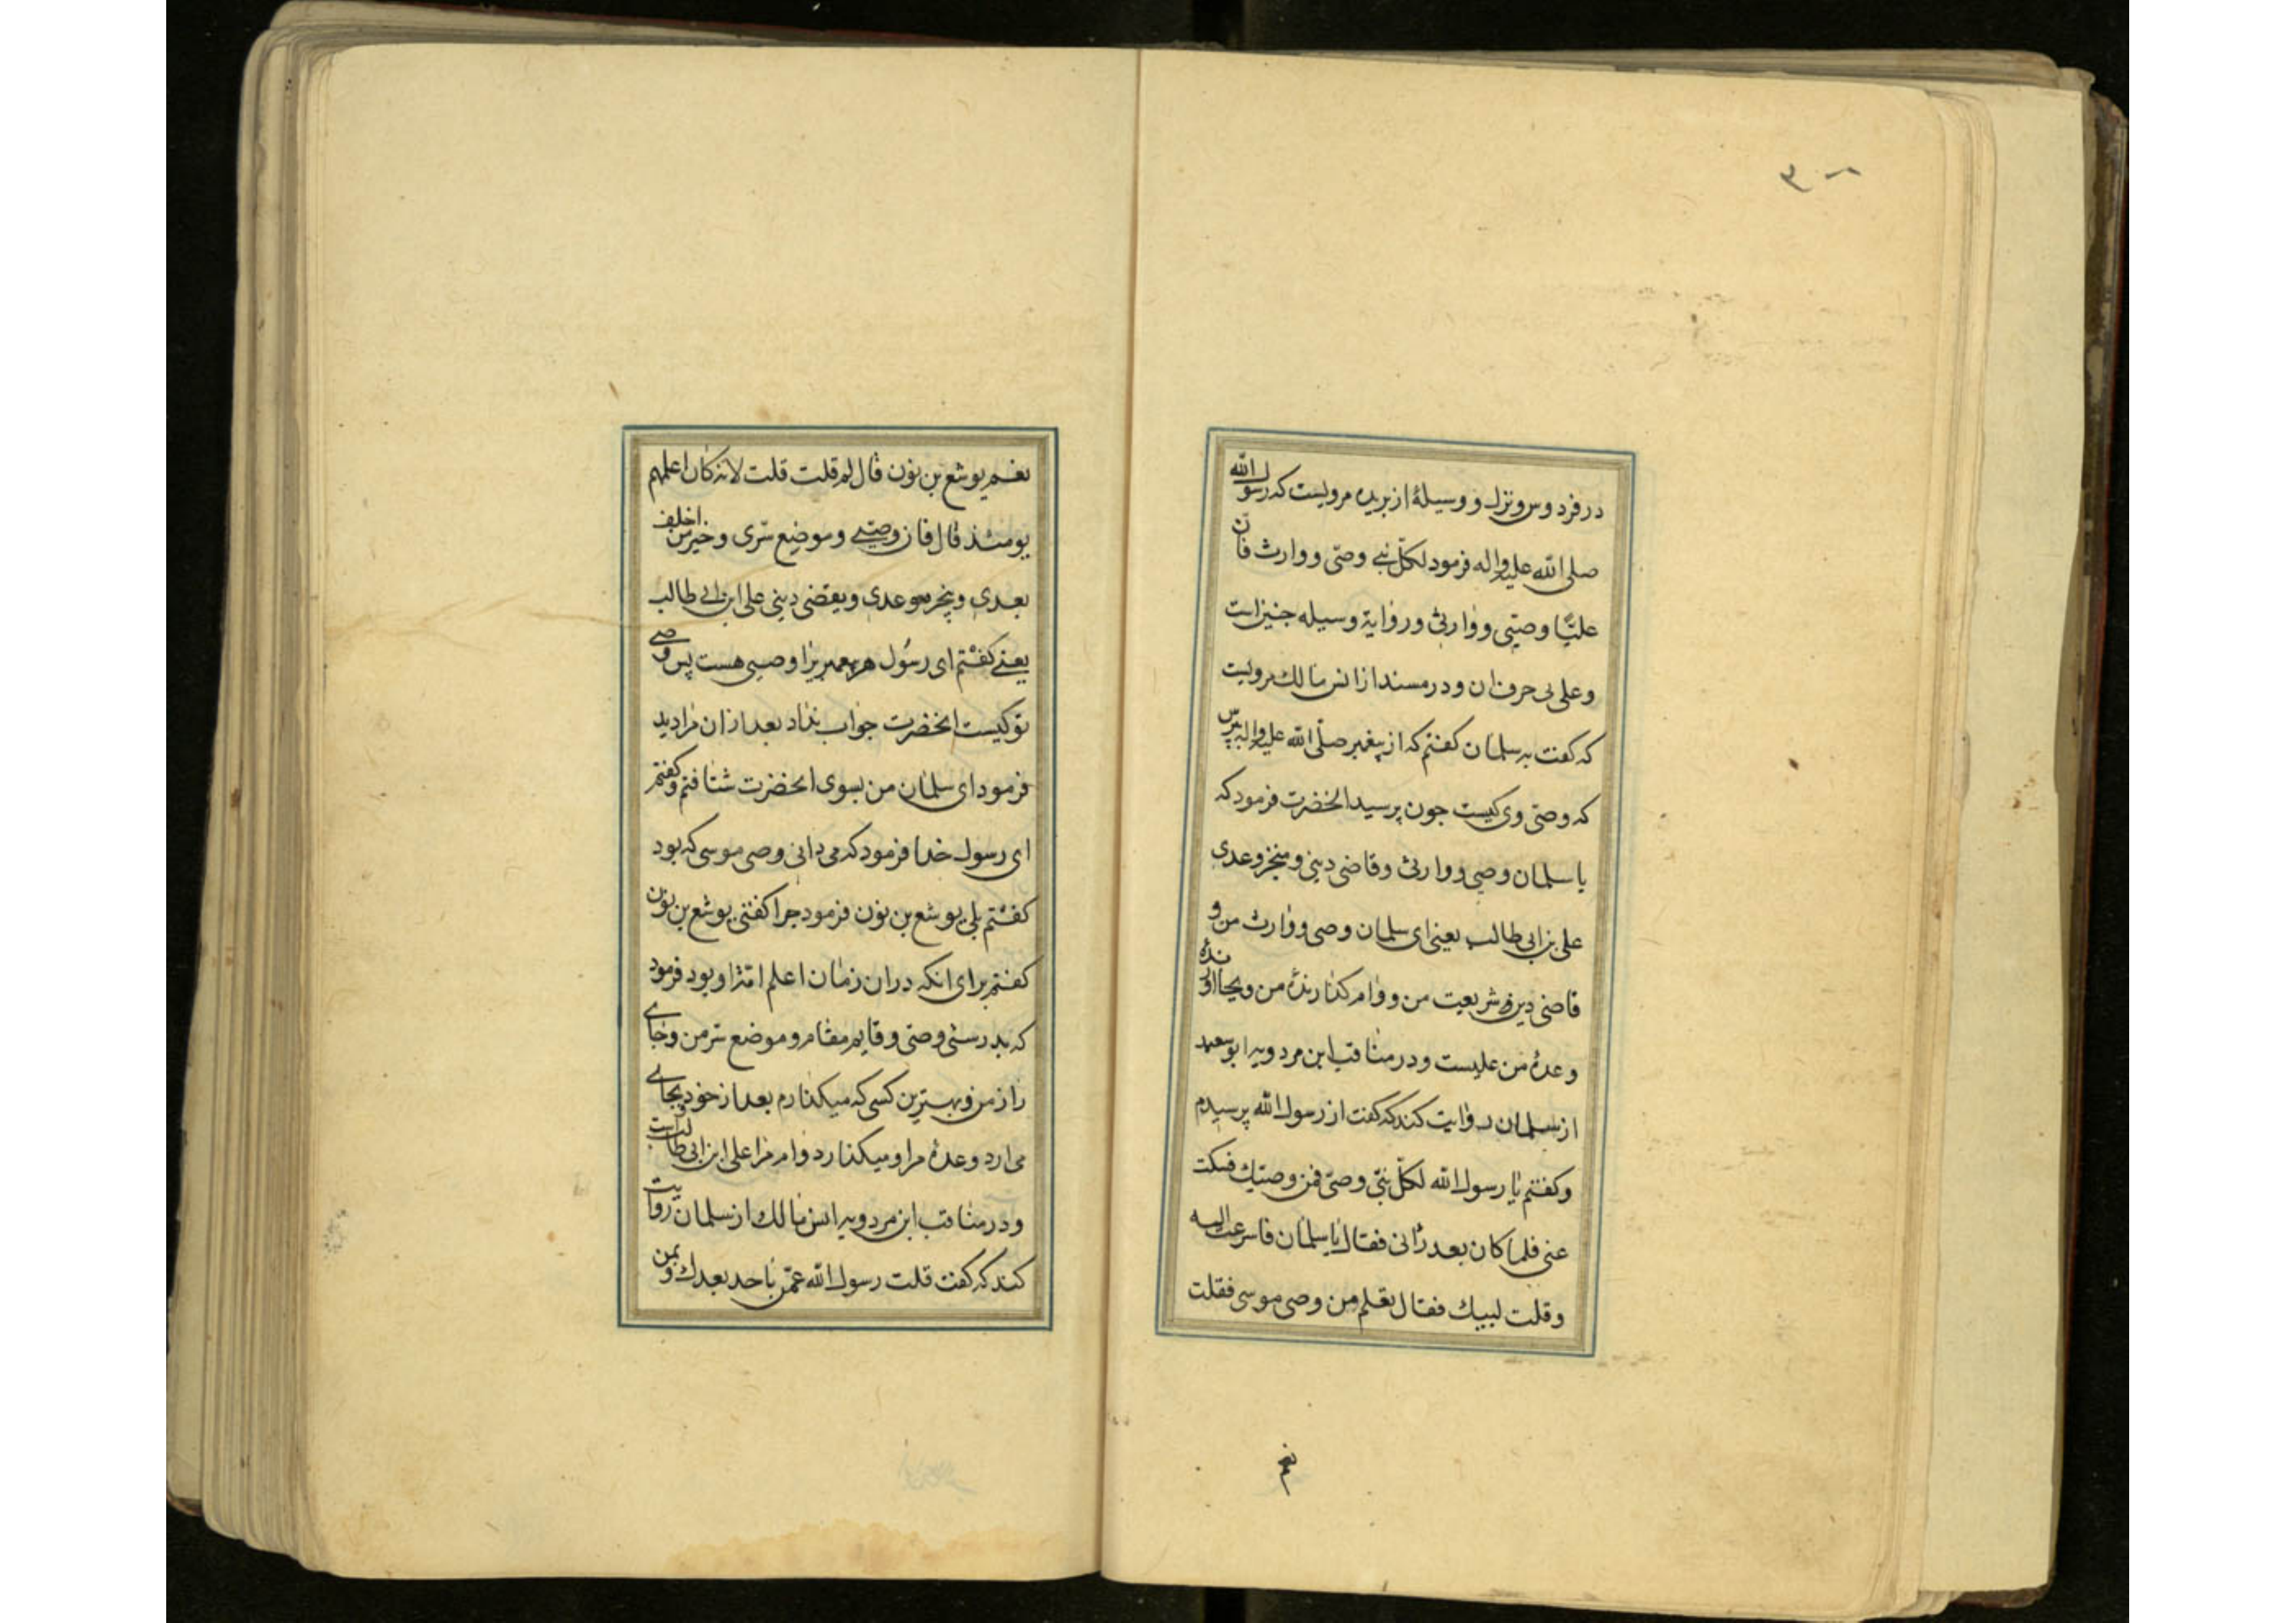 ۳۰۸
در فردوس و نزل و وسیلهٔ از بریده مرویست که رسول الله
صلی الله علیه واله فرمود لکل نبی وصی و وارث فان
علیّا وصیی و وارثی و روایة وسیله جنین است
وعلی بی حرف ان و در مسند از انس مالك مرویست
که گفت به سلمان کفتم که از پیغمبر صلّی الله علیه واله بپرس
که وصی وی کیست جون پرسید انحضرت فرمود که
یا سلمان وصیی و وارثی وقاضی دینی و منجز وعدی
علی بن ابی طالب یعنی ای سلمان وصی و وارث من و
قاضی دین و شریعت من و وام کذارندهٔ من و بجا اورنده
وعدهٔ من علیست و در مناقب ابن مردویه ابو سعید
از سلمان روایت کند که گفت از رسول الله پرسیدم
وکفتم یا رسول الله لکلّ نبیّ وصیّ فمن وصیّك فسکت
عنی فلما کان بعد رٰانی فقال یا سلمان فاسرعت الیه
وقلت لبیك فقال تعلم من وصی موسی فقلت
نعم
نعم یوشع بن نون قال لم قلت قلت لانه کان اعلمهم
یومئذ قال فان وصیی وموضع سرّی وخیر من اخلف
بعدی وینجز موعدی ویقضی دینی علی ابن ابی طالب
یعنی کفتم ای رسول هر پیغمبریرا وصیی هست پس وصی
تو کیست انحضرت جواب نداد بعد از ان مرا دید
فرمود ای سلمان من بسوی انحضرت شتافتم و کفتم
ای رسول خدا فرمود که می دانی وصی موسی که بود
کفتم بلی یوشع بن نون فرمود جرا کفتی یوشع بن نون
کفتم برای انکه در ان زمان اعلم امّت او بود فرمود
که بدرستی وصیّ و قایم مقام و موضع سرّ من و جای
راز من و بهترین کسی که میکذارم بعد از خود بجای
می ارد وعدهٔ مرا و میکذارد وام مرا علی ابن ابی طالب است
و در مناقب ابن مردویه انس مالك از سلمان روایت
کند که گفت قلت رسول الله عمّن ناخذ بعدك و بمن